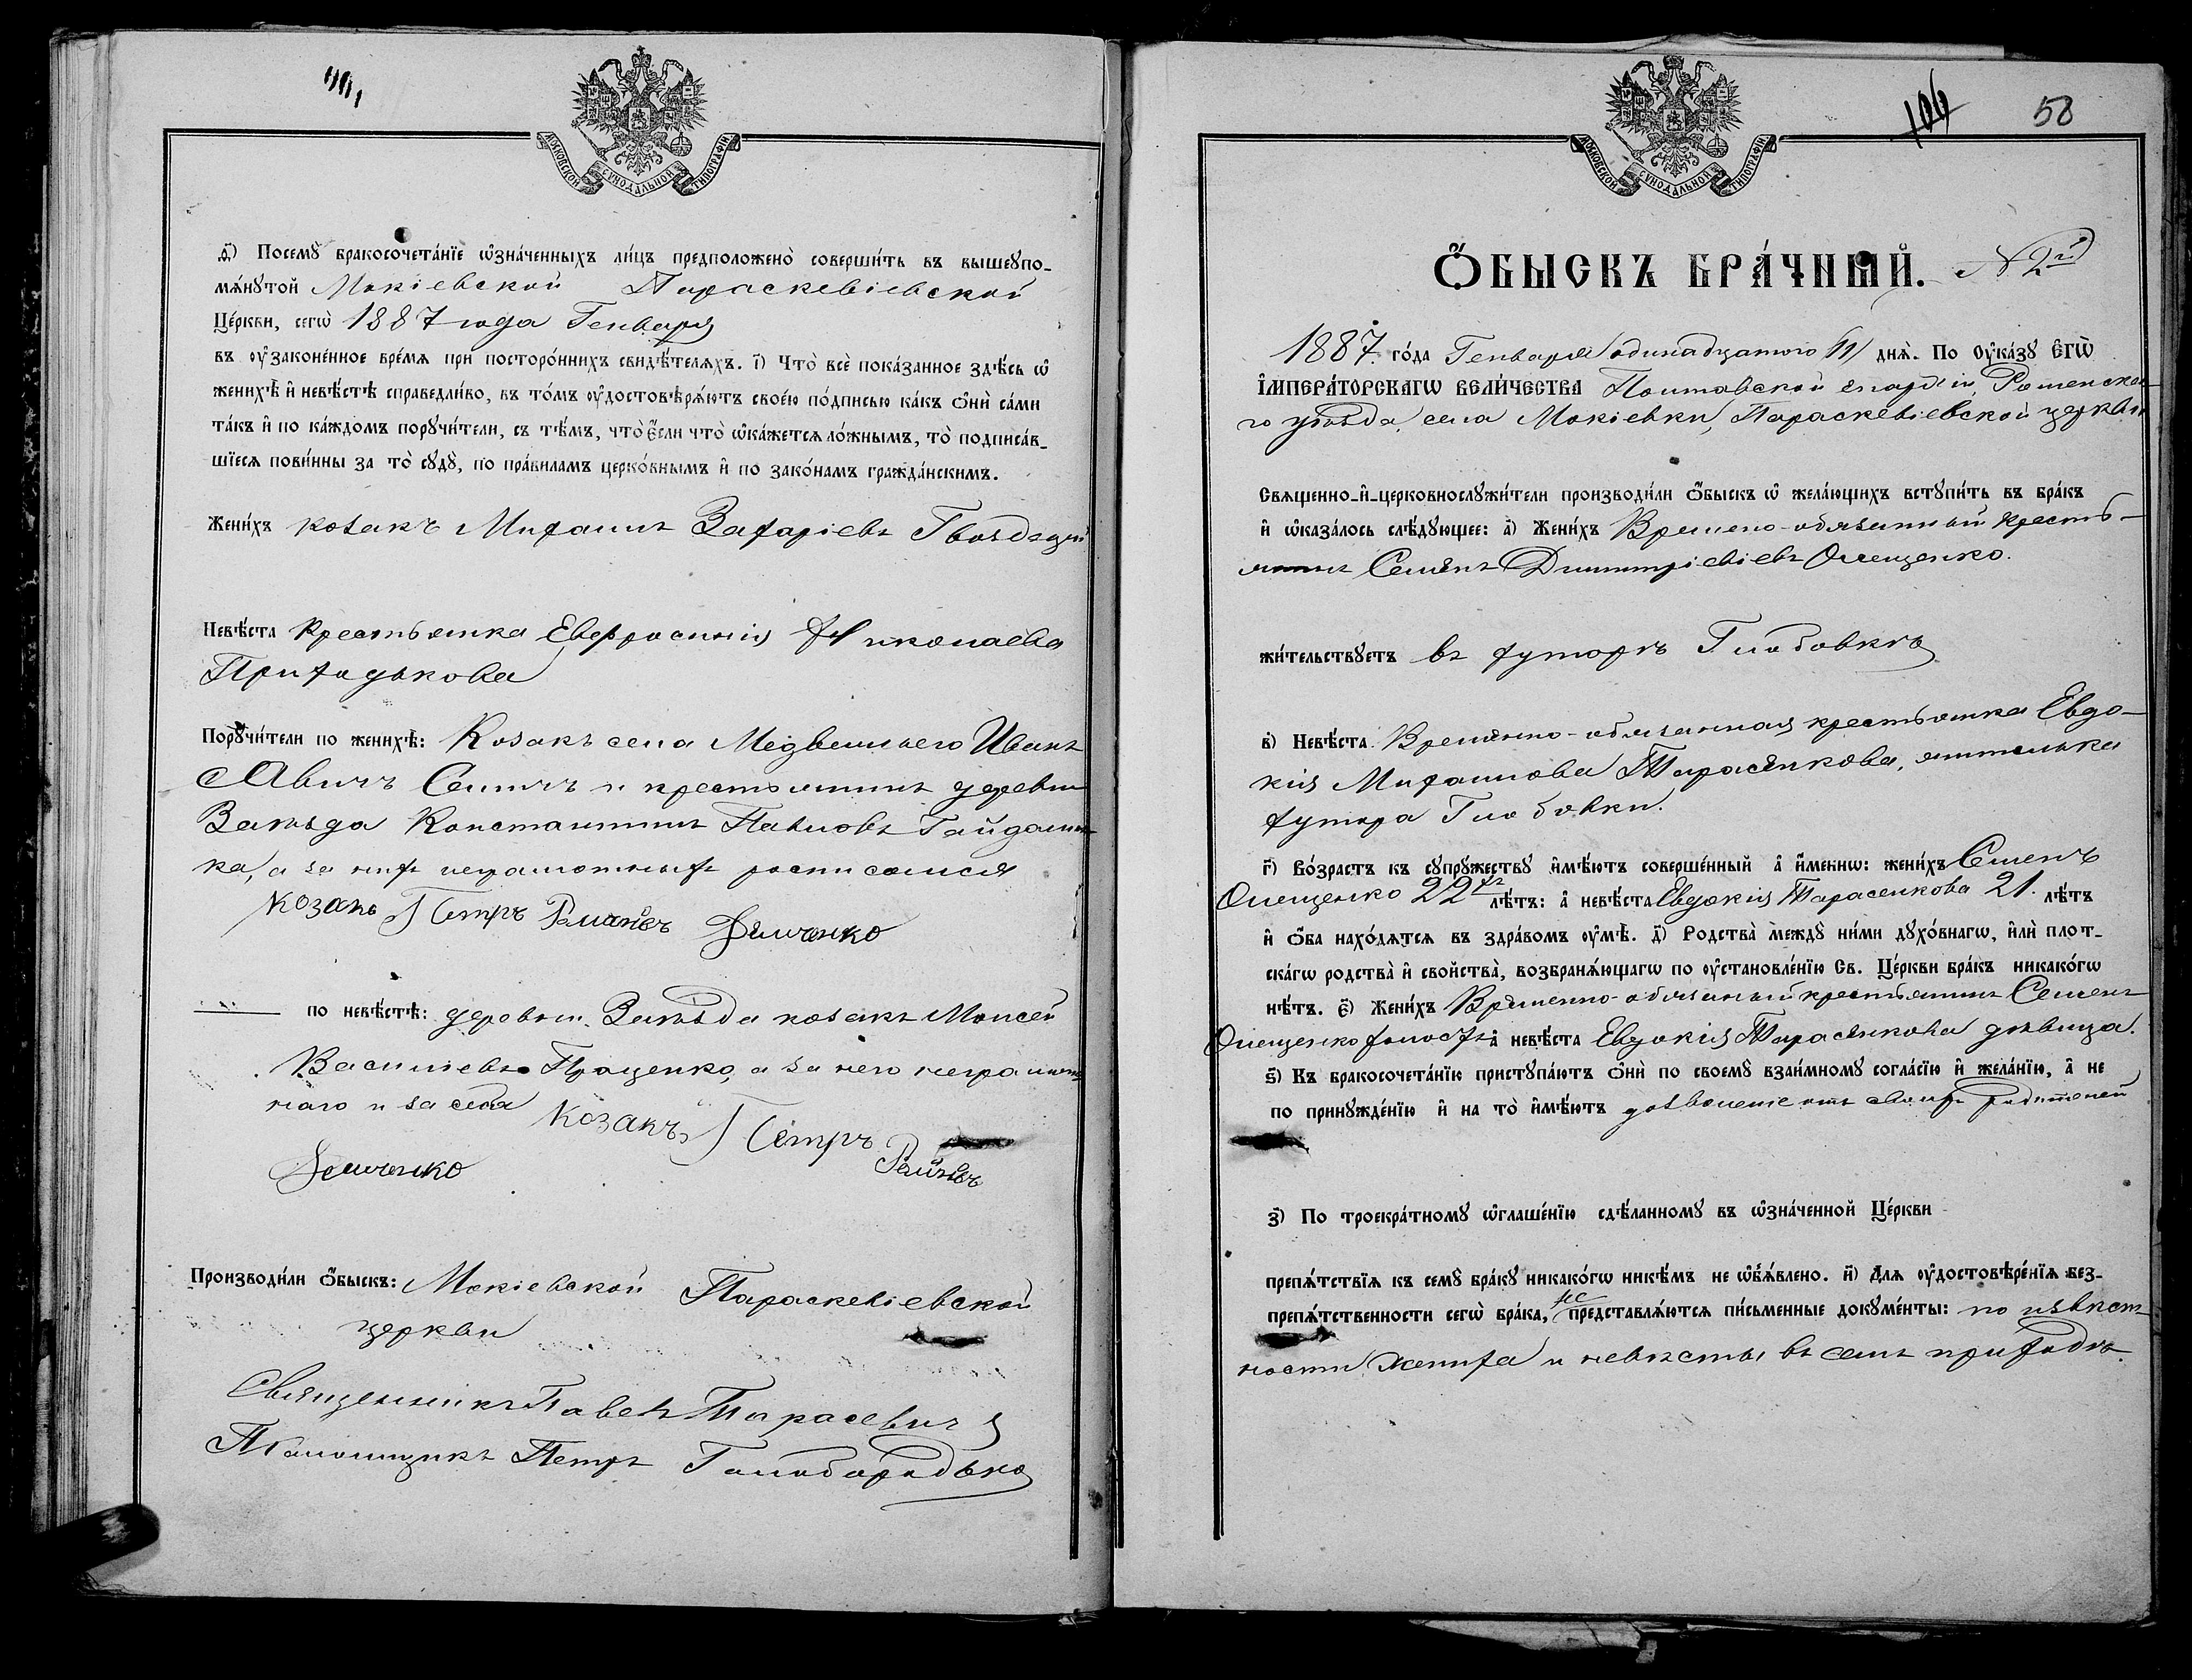 МОСКОВСКОЙ СѴНОДАЛЬНОЙ ТИПОГРАФІИ
ѳ҃) Посемꙋ̀ бракосочета́нїе ѡ҆зна́ченныхъ ли́цъ предположено̀ соверши́ть въ вышеꙋпо-
мѧ́нꙋтой Мокіевской Параскевіевской
Це́ркви, сегѡ̀ 1887 года Генваря
въ ᲂу҆зако́ненное вре́мѧ при посторо́ннихъ свидѣ́телѧхъ. і҃) Что̀ всѐ пока́занное здѣ́сь ѡ҆
женихѣ̀ и҆ невѣ́стѣ справедли́во, въ то́мъ ᲂу҆достовѣрѧ́ютъ свое́ю по́дписью ка́къ ѻ҆нѝ са́ми
та́къ и҆ по ка́ждомъ порꙋчи́тели, съ тѣ́мъ, что̀ є҆́сли что̀ ѡ҆ка́жетсѧ ло́жнымъ, то̀ подписа́в-
шїесѧ пови́нны за то̀ сꙋдꙋ̀, по пра́виламъ церко́внымъ и҆ по зако́намъ гражда́нскимъ.
Жени́хъ козакъ Михаилъ Захаріевъ Гвоздецкій
Невѣ́ста Крестьянка Евфросинія Николаева
Приходькова
Порꙋчи́тели по женихѣ̀: Козакъ села Медвежьего Иванъ
Савичъ и крестьянинъ деревни
Константинъ Павловъ Гайдама-
ка, а за нихъ неграмотныхъ росписался
козакъ Петръ Романовъ Демченко
по невѣ́стѣ: деревни козакъ Моисей
Васильевъ Проценко, а за него неграмот-
наго и за себя козакъ Петръ Романовъ
Демченко
Производи́ли ѻ҆́быскъ: Мокіевской Параскевіевской
церкви
Священникъ Павелъ Тарасевичъ
Псаломщикъ Петръ Голобородько
МОСКОВСКОЙ СѴНОДАЛЬНОЙ ТИПОГРАФІИ
106 58
Ѻ҆́БЫСКЪ БРА́ЧНЫЙ. № 2й
1887 го́да Генваря одинадцатого /11/ днѧ̀. По Оу҆ка́зꙋ Є҆гѡ̀
І҆мпера́торскагѡ Вели́чества Полтавской епархіи, Роменска-
го уѣзда, села Мокіевки, Параскевіевской церкви
Свѧщенно-и҆-церковнослꙋжи́тели производи́ли ѻ҆́быскъ ѡ҆ жела́ющихъ встꙋпи́ть въ бра́къ
и҆ ѡ҆каза́лось слѣ́дꙋющее: а҃) Жени́хъ Времено-обязанный кресть-
янинъ Семенъ Димитріевіевъ Онещенко.
жи́тельствꙋетъ въ хуторѣ Глобовкѣ
в҃) Невѣ́ста Временно-обязанная крестьянка Евдо-
кія Михаилова Тарасенкова, жителька
хутора Глобовки.
г҃) Во́зрастъ къ сꙋпрꙋ́жествꙋ и҆мѣ́ютъ соверше́нный а҆ и҆́меннѡ: жени́хъ Семенъ
Онещенко 22хъ лѣ́тъ: а҆ невѣ́ста Евдокія Тарасенкова 21. лѣ́тъ
и҆ ѻ҆́ба нахо́дѧтсѧ въ здра́вомъ ᲂу҆мѣ̀. д҃) Родства̀ междꙋ̀ ни́ми дꙋхо́внагѡ, и҆лѝ плот-
ска́гѡ родства̀ и҆ сво́йства̀, возбранѧ́ющагѡ по ᲂу҆становле́нїю Св. Це́ркви бра́къ никако́гѡ
нѣ́тъ. є҃) Жени́хъ Временно-обязаный крестьянинъ Семенъ
Онещенко холостъ а҆ невѣ́ста Евдокія Тарасенкова дѣвица.
ѕ҃) Къ бракосочета́нїю пристꙋпа́ютъ ѻ҆нѝ по своемꙋ̀ взаи́мномꙋ согла́сїю и҆ жела́нїю, а҆ не
по принꙋжде́нїю и҆ на то̀ и҆мѣ́ютъ дозволеніе отъ своихъ родителей
з҃) По троекра́тномꙋ ѡ҆глаше́нїю сдѣ́ланномꙋ въ ѡ҆зна́ченной Це́ркви
препѧ́тствїѧ къ семꙋ̀ бра́кꙋ никако́гѡ никѣ́мъ не ѡ҆б̾ѧ́влено. и҃) Длѧ ᲂу҆достовѣре́нїѧ без-
препѧ́тственности сегѡ̀ бра́ка, не представлѧ́ютсѧ пи́сьменные докꙋме́нты: по извѣст-
ности жениха и невѣсты въ семъ приходѣ.